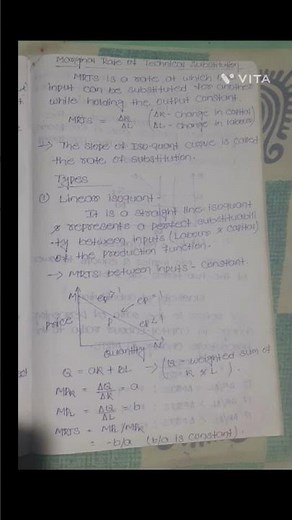 Marginal Rate of Technical Substitution
MRTS is a rate at which
input can be substituted for another
while holding the output constant
MRTS = ΔK/ΔL (ΔK - change in capital
ΔL - change in labour)
→ The slope of Iso-quant curve is called
the rate of substitution.
Types
① Linear isoquant -
It is a straight line isoquant
& represents a perfect substituti
ty between inputs (Labour & capital)
of the production function.
→ MRTS between inputs - constant
M
Price
P
Quantity
Q = aK + bL → (Q = weighted sum of
K & L)
MPK = ΔQ/ΔK = a
MPL = ΔQ/ΔL = b
MRTS = MPL/MPK
= -b/a (b/a is constant)
VITA